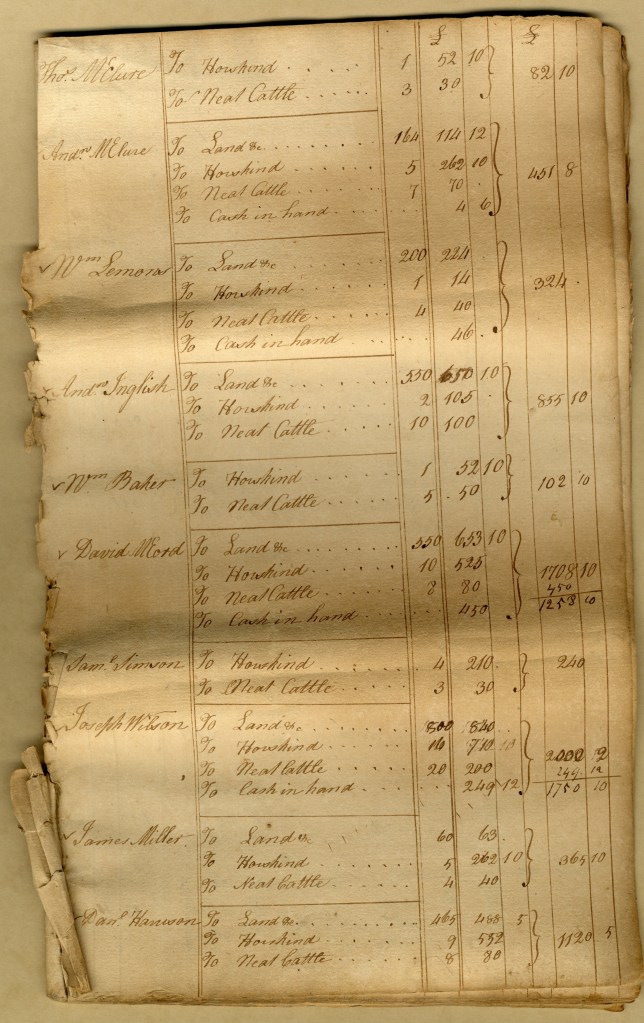 £ £
Thos. McClure To Horskind . . . . . 1 52 10
82 10
To Neat Cattle . . . . . . 3 30
Andrw. McClure To Land &c . . . . . . 164 114 12
To Horskind . . . . . . 5 262 10
451 8
To Neat Cattle . . . . . . 7 70 .
To Cash in hand . . . . . 4 6
Wm Lemons To Land &c . . . . . . 200 224 .
To Horskind . . . . . . 1 14
324 .
To Neat Cattle . . . . . . 4 40
To Cash in hand . . . . . 46 .
Andrw. Inglish To Land &c . . . . . . 550 650 10
To Horskind . . . . . . 2 105 .
855 10
To Neat Cattle . . . . . . 10 100
Wm Baker To Horskind . . . . . . 1 52 10
102 10
To Neat Cattle . . . . . . 5 50
David McCord To Land &c . . . . . . 550 653 10
To Horskind . . . . . . 10 525
1708 10
To Neat Cattle . . . . . . 8 80
450
To Cash in hand . . . . . 450
1258 10
Saml. Simson To Horskind . . . . . . 4 210 .
240
To Neat Cattle . . . . . . 3 30
Joseph Wilson To Land &c . . . . . . 800 840
To Horskind . . . . . . 16 710 10
2000 2
To Neat Cattle . . . . . . 20 200
249 12
To Cash in hand . . . . . 249 12
1750 10
James Miller To Land &c . . . . . . 60 63 .
To Horskind . . . . . . 5 262 10
365 10
To Neat Cattle . . . . . . 4 40
Danl. To Land &c . . . . . . 465 488 5
To Horskind . . . . . . 9 552
1120 5
To Neat Cattle . . . . . . 8 80